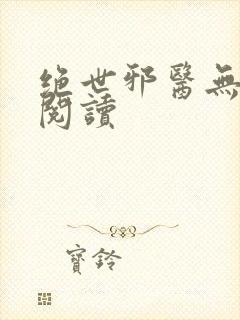 絕世邪醫無
閱讀
寶鈴